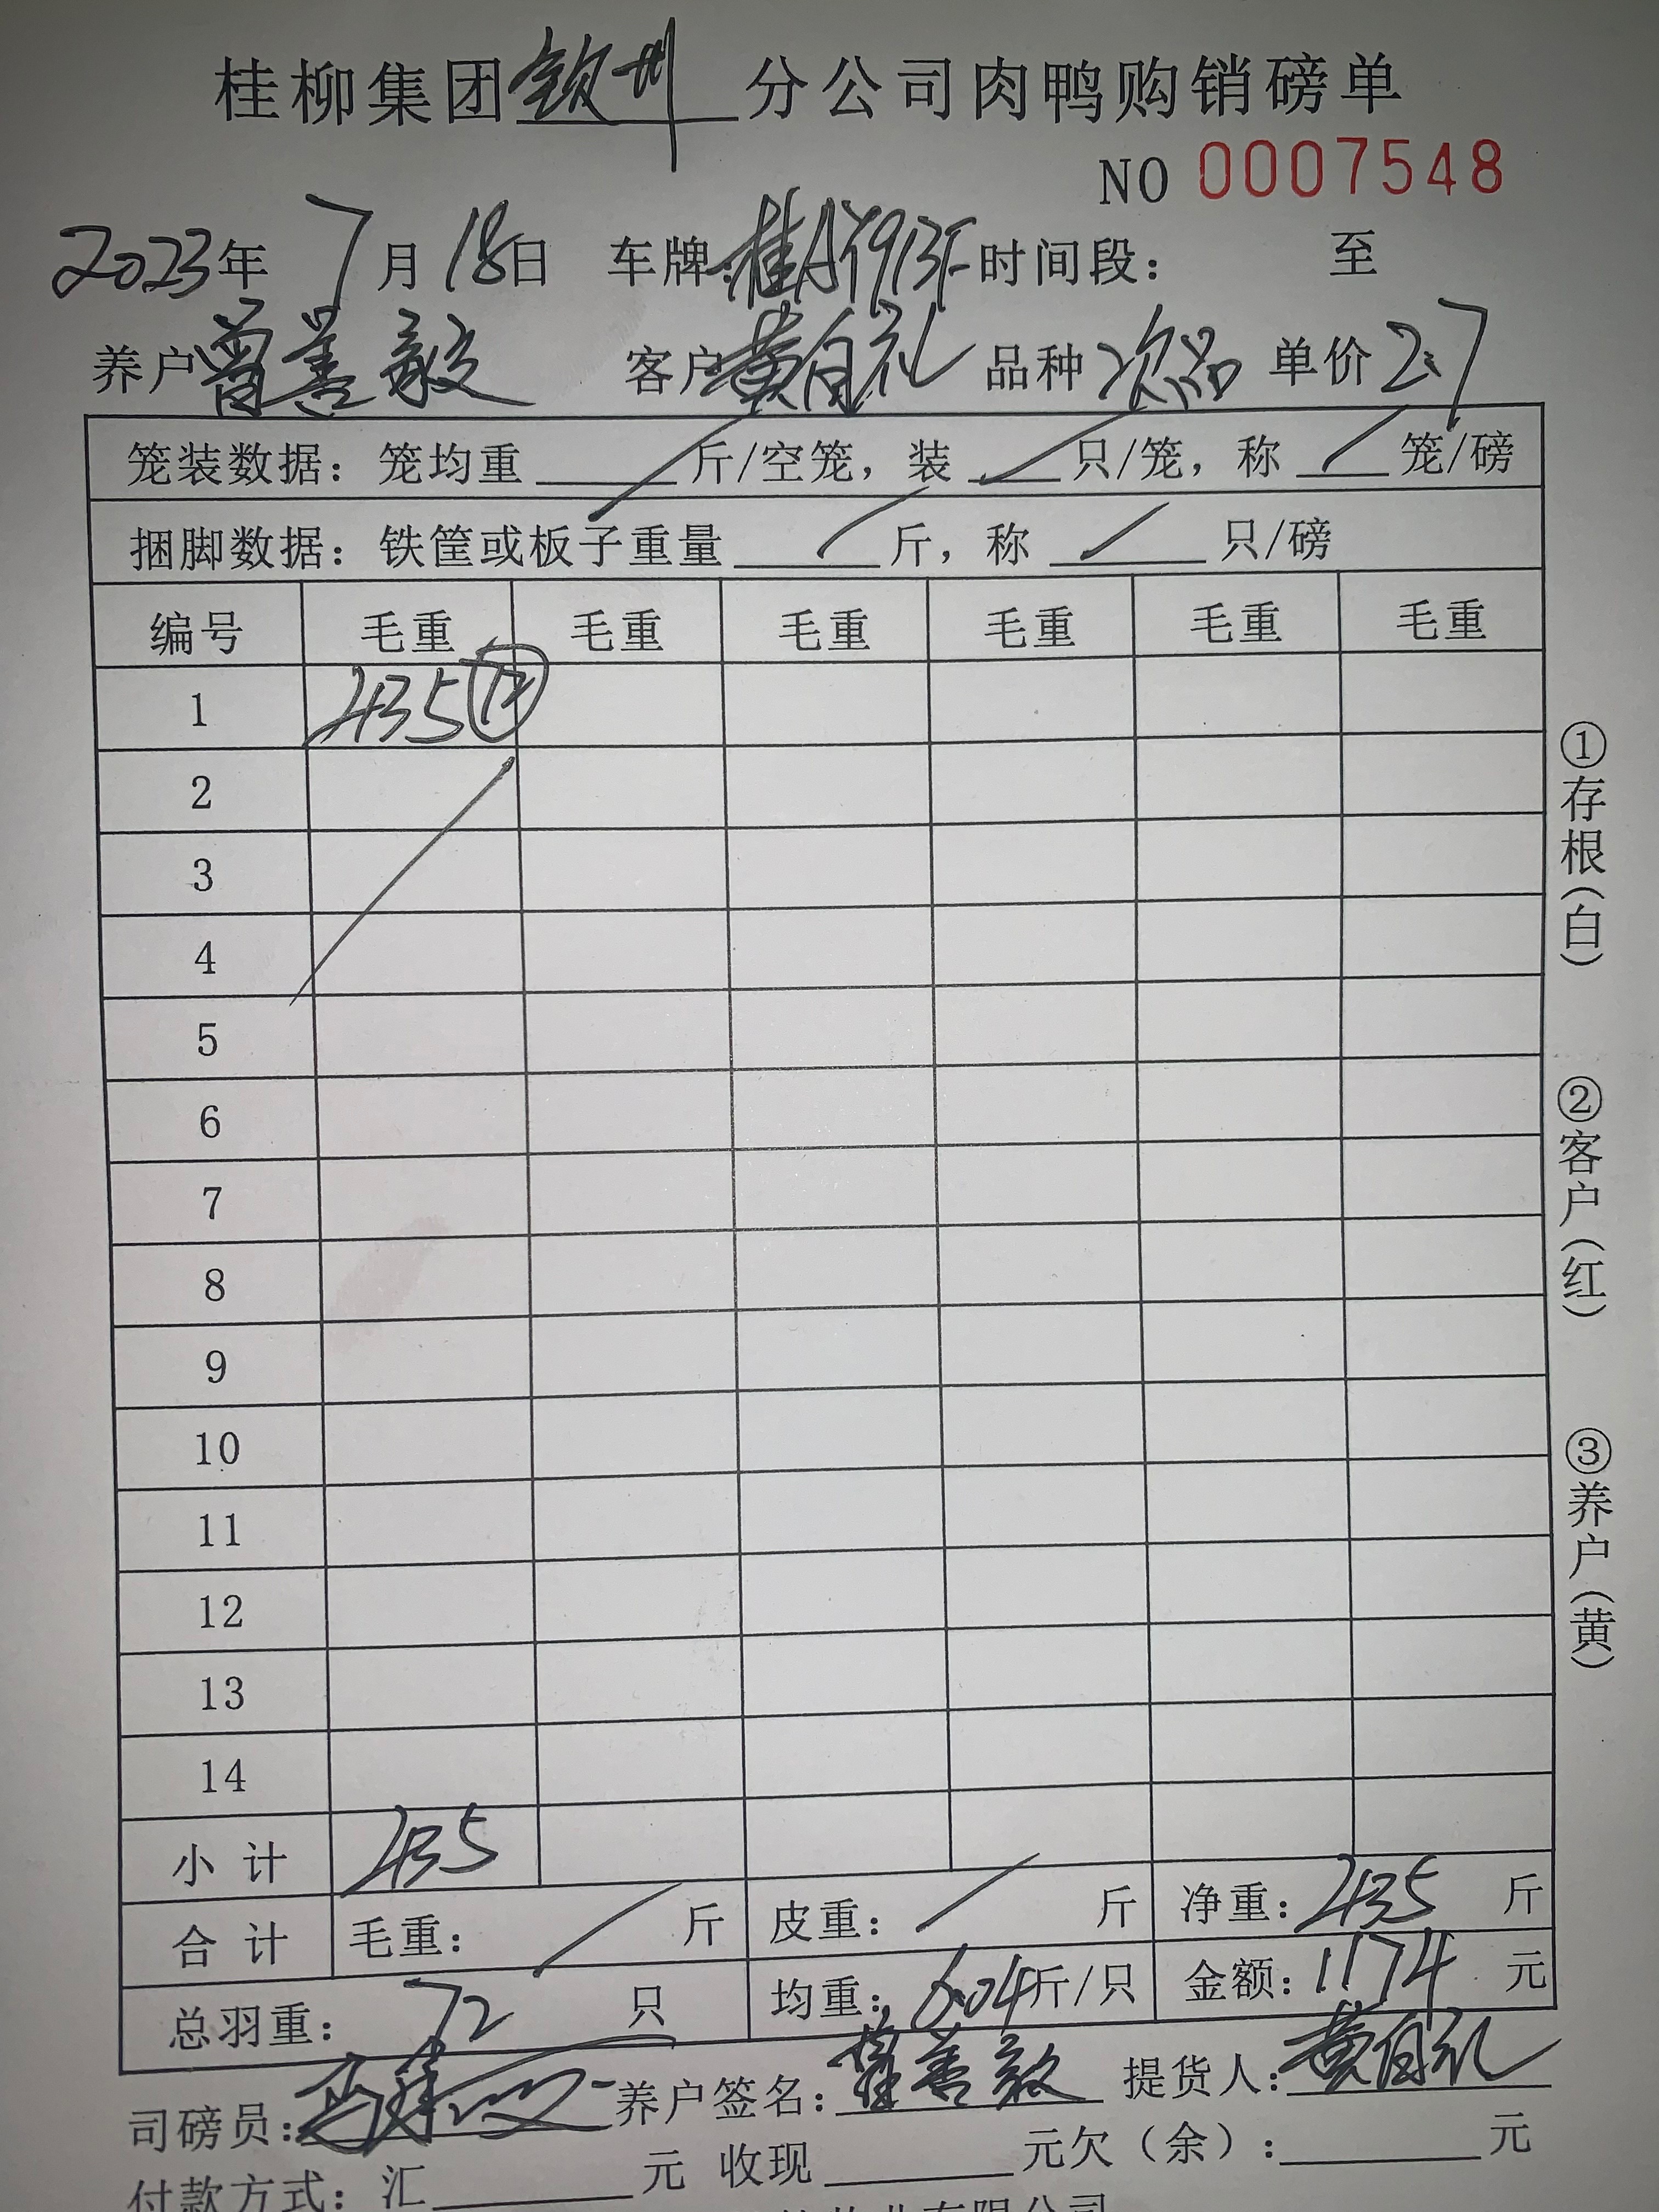 桂柳集团钦州分公司肉鸭购销磅单
NO 0007548
2023年7月18日 车牌:桂AY913F时间段: 至
养户曾善敏 客户黄自礼 品种次品 单价2.7
笼装数据: 笼均重/斤/空笼, 装/只/笼, 称/笼/磅
捆脚数据: 铁筐或板子重量/斤, 称/只/磅
编号 毛重 毛重 毛重 毛重 毛重 毛重
1 435
2
3
4
5
6
7
8
9
10
11
12
13
14
小计 435
合计 毛重: / 斤 皮重: / 斤 净重: 435 斤
总羽重: 72 只 均重: 6.04斤/只 金额: 1174 元
司磅员: 养户签名: 提货人: 黄自礼
付款方式: 汇 元 收现 元欠(余): 元
业有限公司
①存根(白)
②客户(红)
③养户(黄)